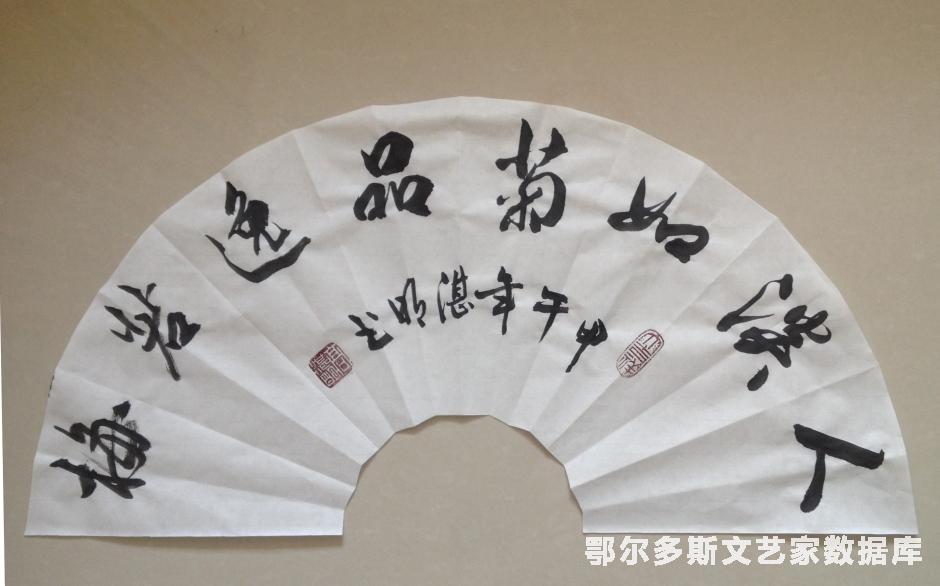 人澹如菊品逸若梅
甲午年湛明书
鄂尔多斯文艺家数据库